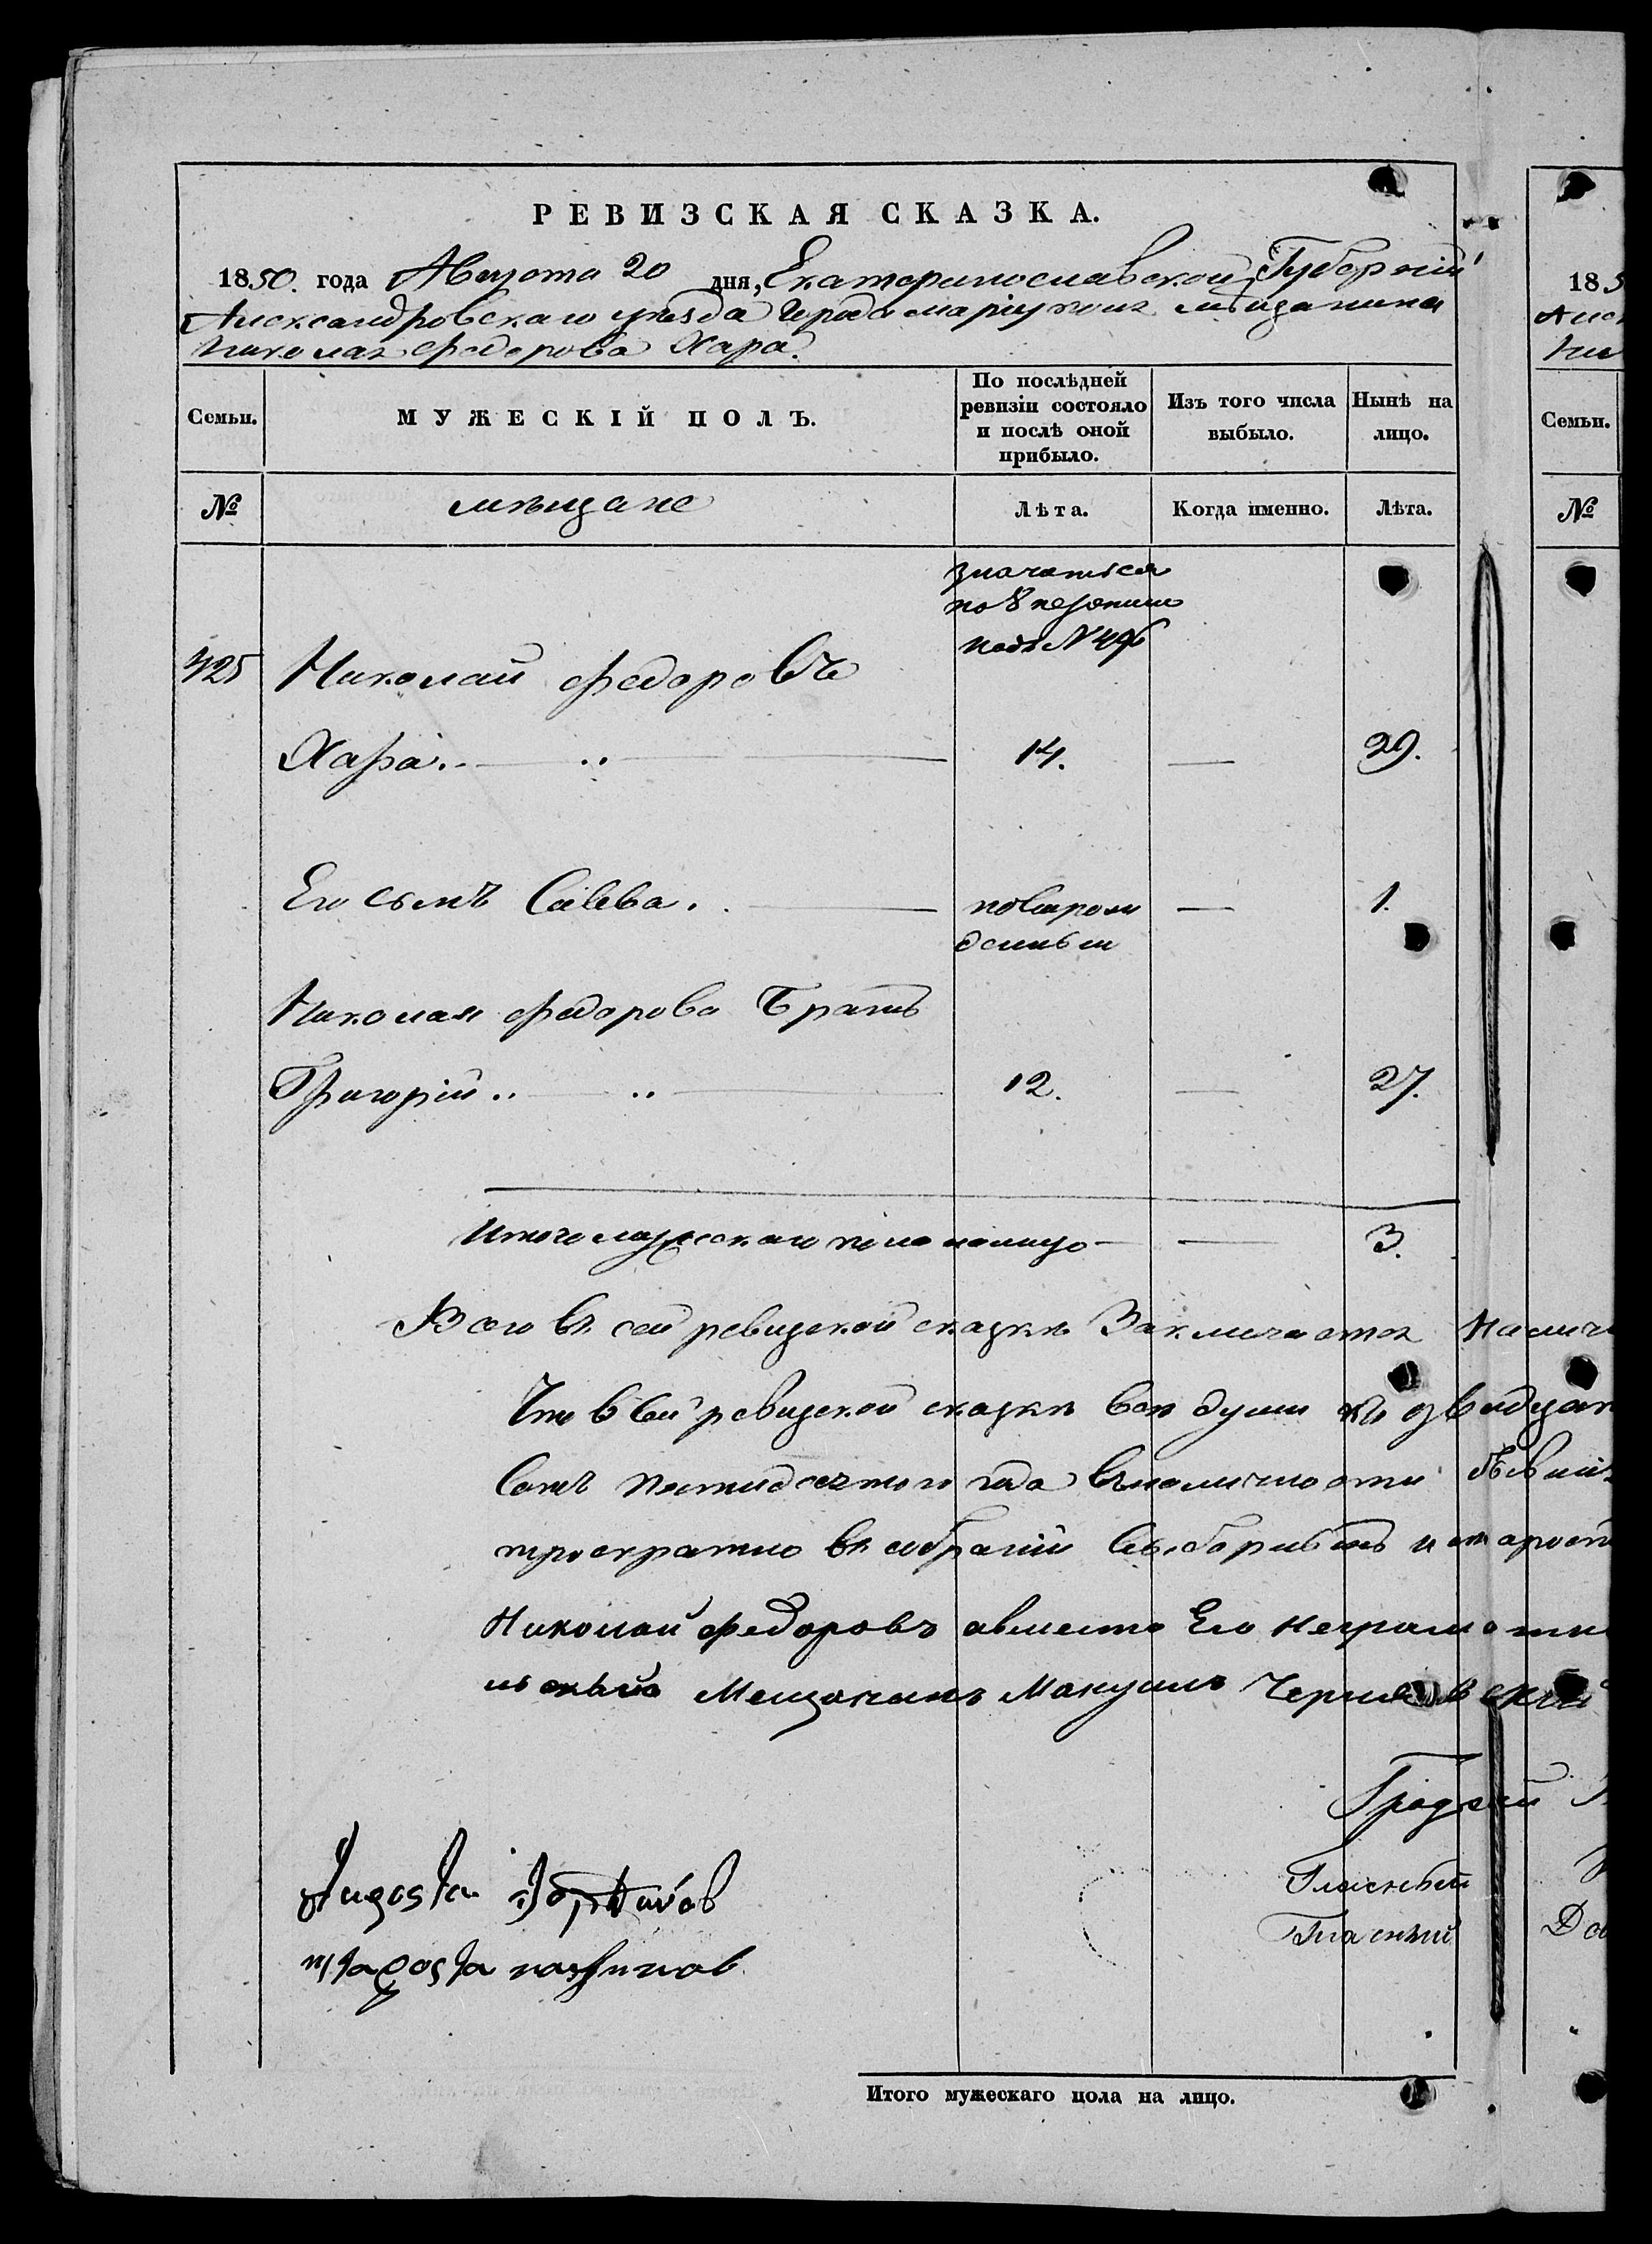 РЕВИЗСКАЯ СКАЗКА.
1850. года Августа 20 дня, Екатеринославской Губерніи
Александровскаго уѣзда Города Маріуполя мѣщанина
Николая Федорова Хара.
Семьи.
МУЖЕСКІЙ ПОЛЪ.
По послѣдней ревизіи состояло и послѣ оной прибыло.
Изъ того числа выбыло.
Нынѣ на лицо.
№
мѣщане
Лѣта.
Когда именно.
Лѣта.
значатся
по 8 ревизии
подъ N
425 Николай Федоровъ
Хара. 14. 29.
Его сынъ Савва. 1.
Николая Федорова Братъ
Григорій 12. 27.
Итого мужескаго пола налицо 3.
Всего въ сей ревизской сказкѣ Заключается
Что в сей ревизской сказкѣ все души
сотъ пятидесятого года въ наличности бывши
троекратно въ собраніи
Николай Федоровъ авместо Его неграмотн
Мещанинъ Мануилъ
Гласный
Гласный
староста
Итого мужескаго пола на лицо.
185
Семьи.
№